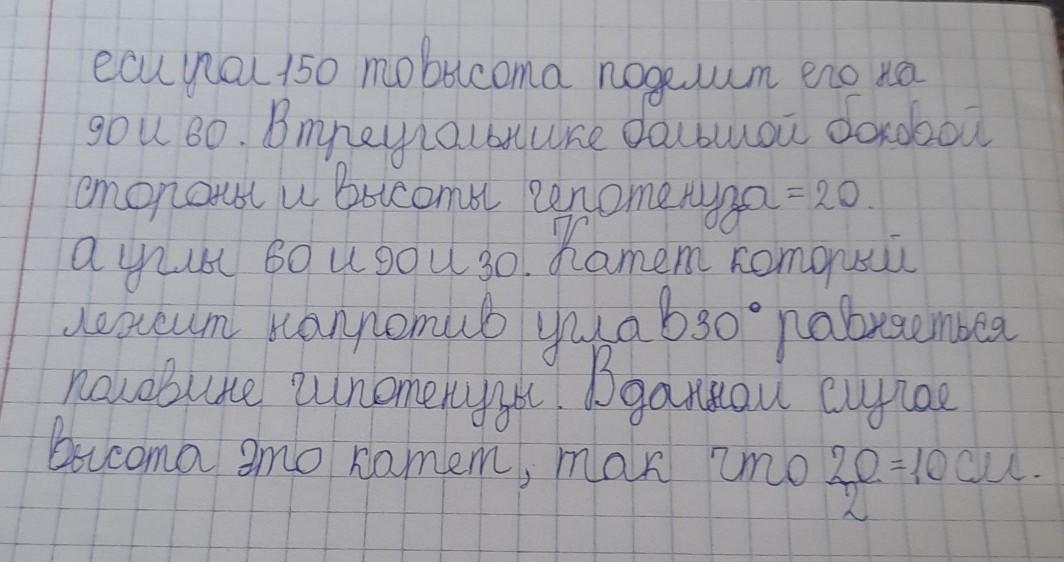 еси угол 150 то высота поделит его на
90 и 60. В треугольнике большой боковой
стороны и высоты гепотенуза = 20.
а углы 60 и 90 и 30. Катет который
лежит напротив угла в 30° равняеться
половине гипотенузы. В данном случае
высота это катет, так что 20/2 = 10 см.